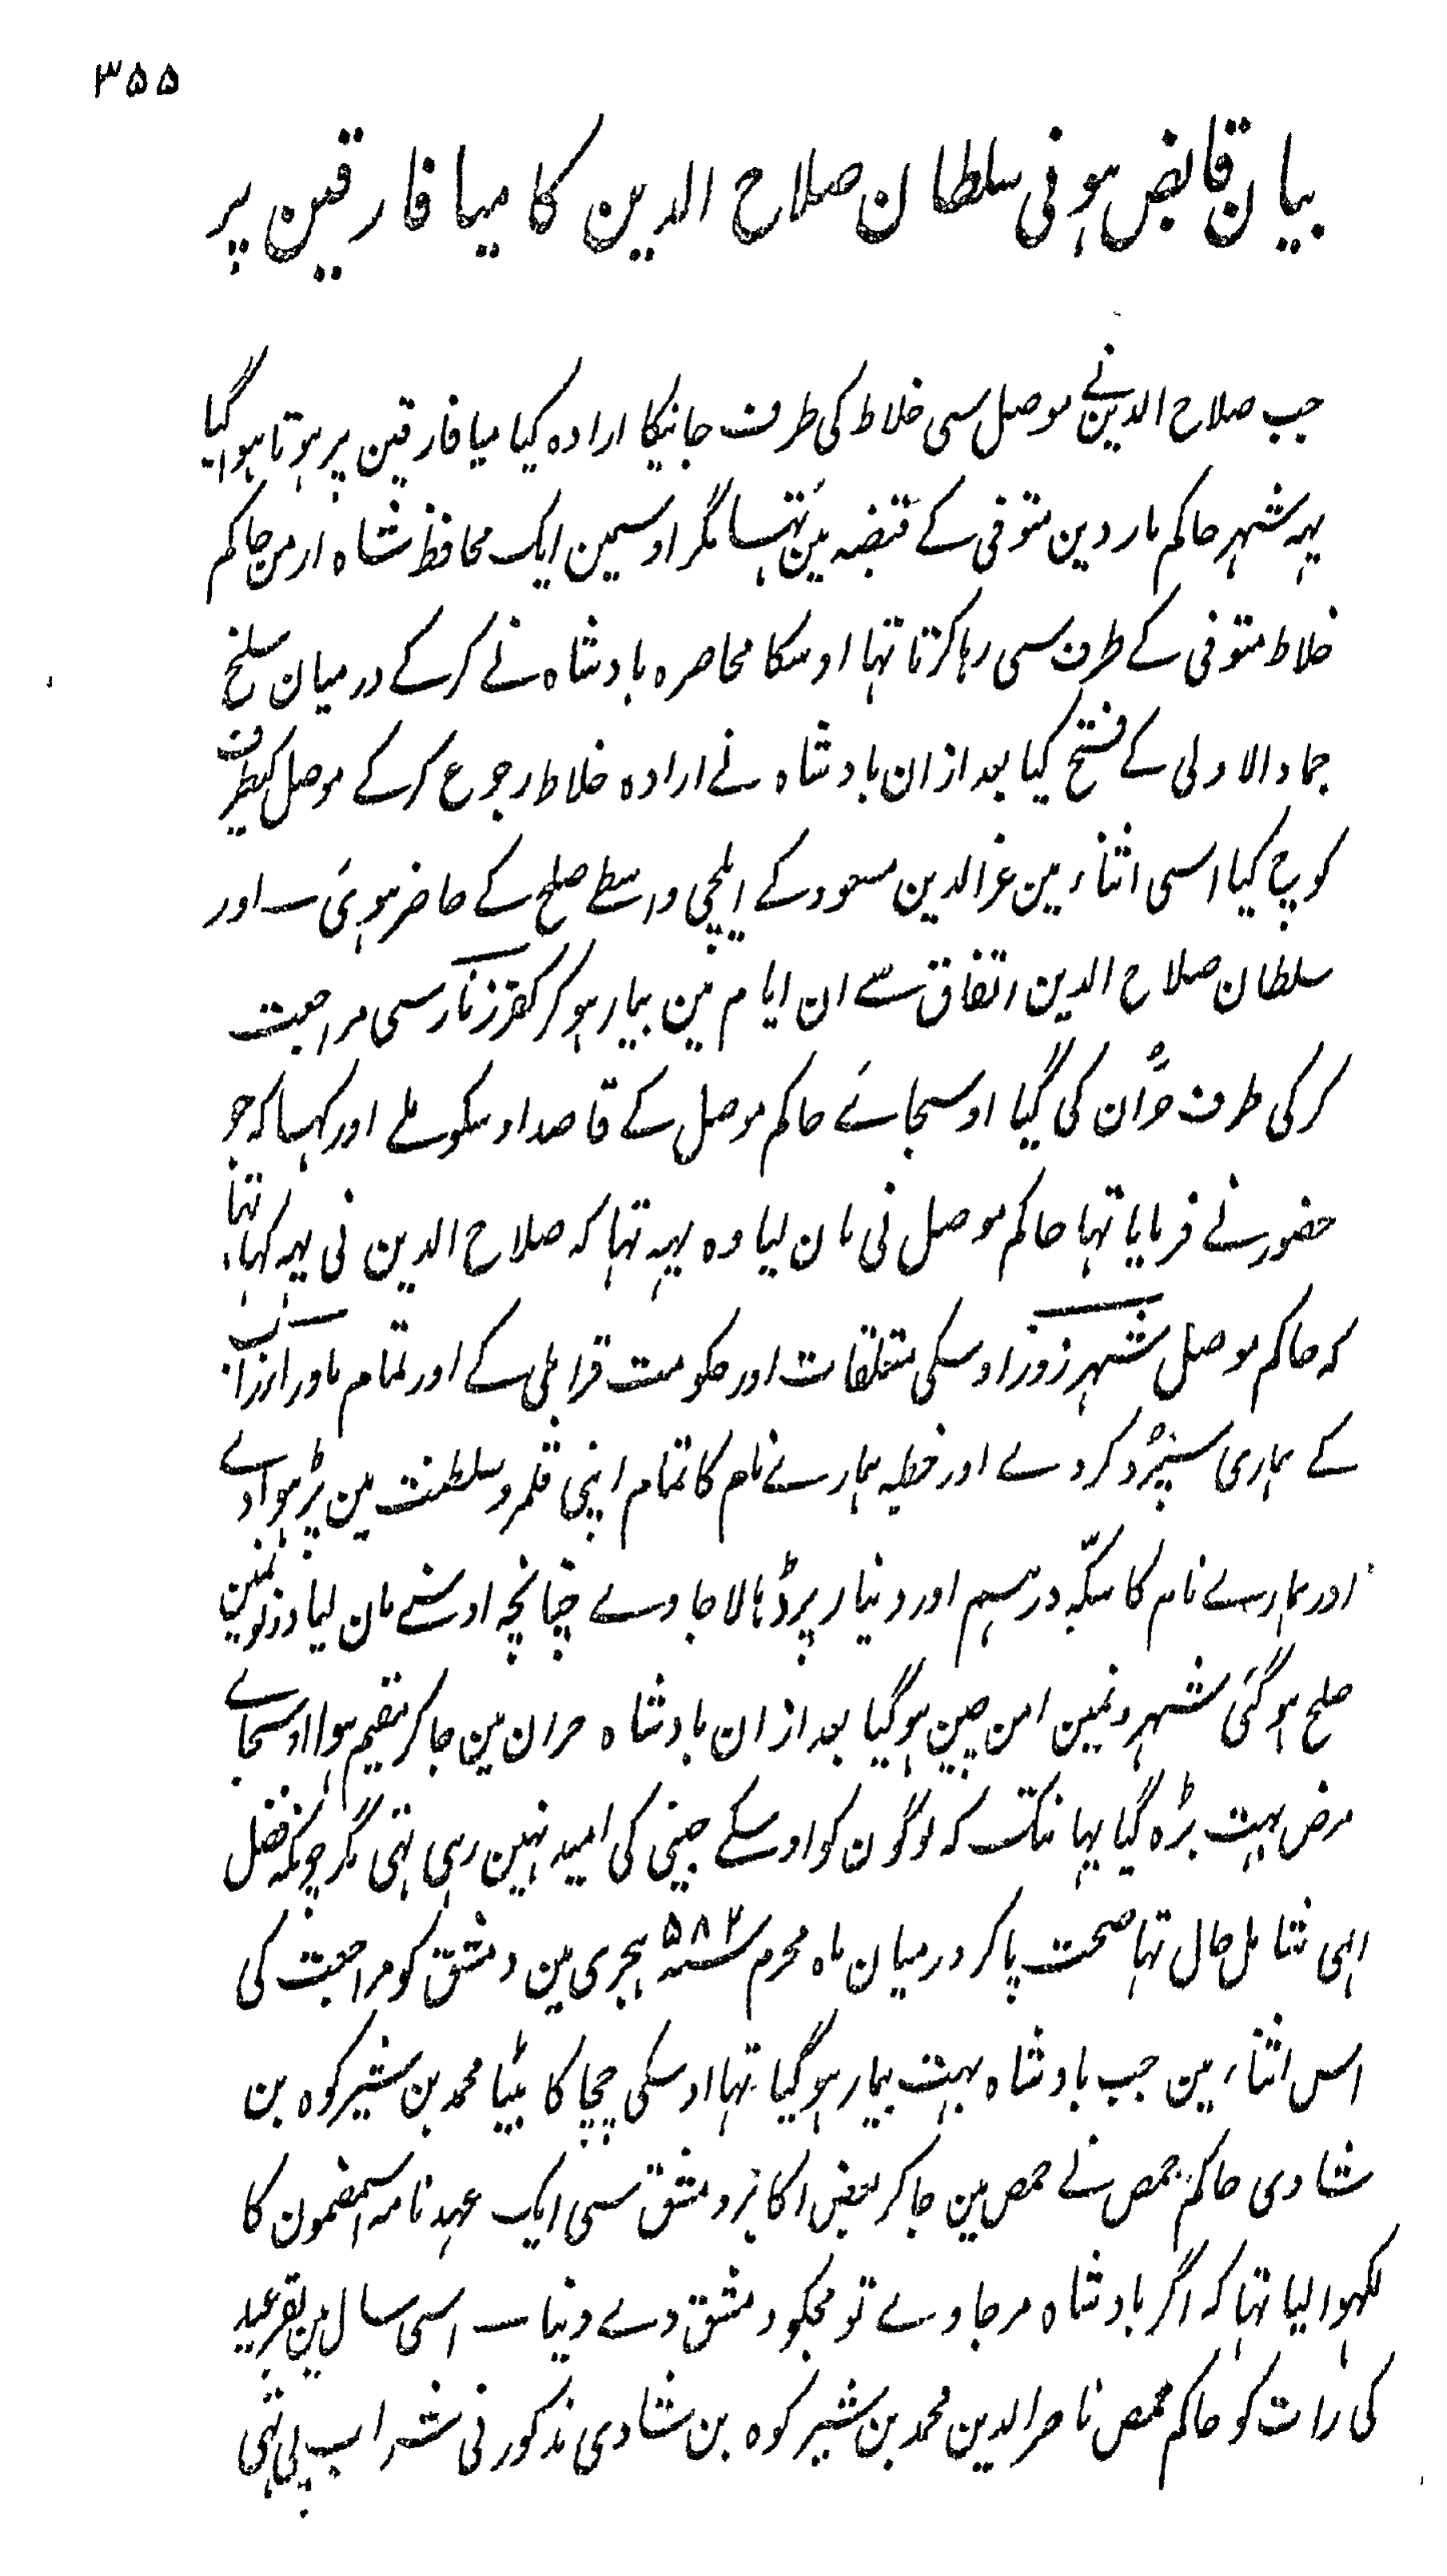 ۳۵۵
بیان قابض ہونی سلطان صلاح الدین کا میا فارقین پر
جب صلاح الدین نے موصل سی خلاط کی طرف جانیکا ارادہ کیا میا فارقین پر ہوتا ہوا گیا
یہہ شہر حاکم ماردین متوفی کے قبضہ مین تہا مگر اوسمین ایک محافظ شاہ ارمن حاکم
خلاط متوفی کے طرف سی رہا کرتا تہا اوسکا محاصرہ بادشاہ نے کر کے درمیان سلخ
جماد الاولی کے فتح کیا بعد ازان بادشاہ نے ارادہ خلاط رجوع کر کے موصل کیطرف
کوچ کیا اسی اثناء مین عز الدین مسعود کے ایلچی واسطے صلح کے حاضر ہوئی ـ اور
سلطان صلاح الدین اتفاق سے ان ایام مین بیمار ہو کر کفر زمار سی مراجعت
کر کی طرف حرّان کی گیا اوسجائے حاکم موصل کے قاصد اوسکو ملے اور کہا کہ جو
حضور نے فرمایا تہا حاکم موصل نی مان لیا وہ یہہ تہا کہ صلاح الدین نی یہہ کہا تہا
کہ حاکم موصل شہر زور اوسکی متعلقات اور حکومت قرابلی کے اور تمام ماورا زاب
کے ہماری سپرد کر دے اور خطبہ ہمارے نام کا تمام اپنی قلمرو سلطنت مین پڑہوا دے
اور ہمارے نام کا سکّہ درہم اور دینار پر ڈہالا جاوے چنانچہ اوسنے مان لیا دونونمین
صلح ہو گئی شہرونمین امن چین ہو گیا بعد ازان بادشاہ حران مین جا کر مقیم ہوا اوسجائے
مرض بہت بڑہ گیا یہانتک کہ لوگون کو اوسکے جینی کی امید نہین رہی تہی مگر چونکہ فضل
الہی شامل حال تہا صحت پا کر درمیان ماہ محرم سنہ ۵۸۲ ہجری مین دمشق کو مراجعت کی
اس اثناء مین جب بادشاہ بہت بیمار ہو گیا تہا اوسکی چچا کا بیٹا محمد بن شیر کوہ بن
شادی حاکم حمص نے حمص مین جا کر بعض اکابر دمشق سی ایک عہد نامہ اسمضمون کا
لکہوا لیا تہا کہ اگر بادشاہ مر جاوے تو مجکو دمشق دے دینا ـ اسی سال مین بقرعید
کی رات کو حاکم حمص ناصر الدین محمد بن شیر کوہ بن شادی مذکور نی شراب پی تہی